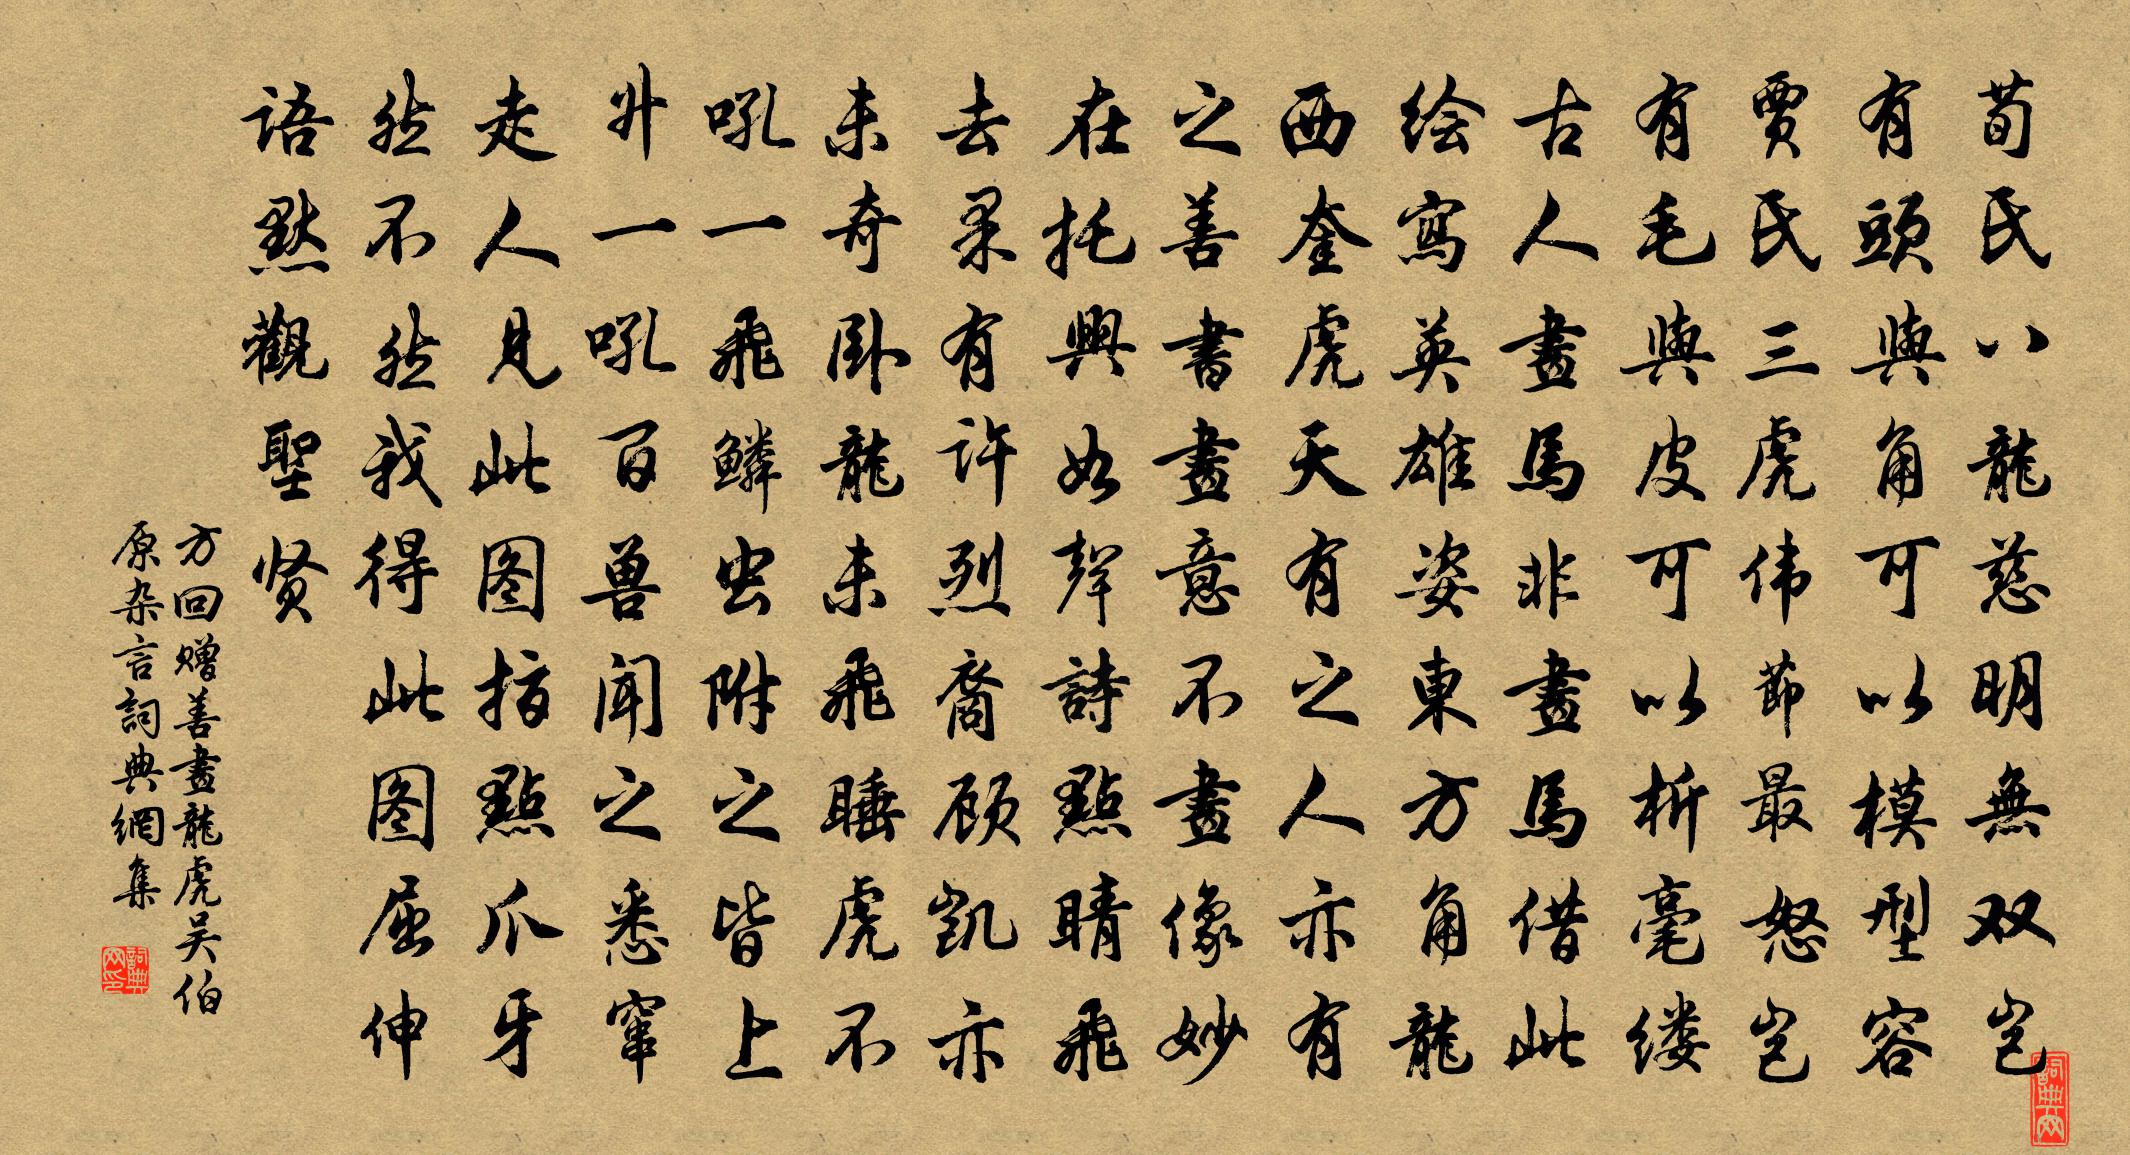 荀氏八龍慈明無双岂
有頭與角可以模型容
贾氏三虎伟節最怒岂
有毛與皮可以析毫缕
古人畫馬非畫馬借此
绘寫英雄姿東方角龍
西奎虎天有之人亦有
之善書畫意不畫像妙
在托興如聲詩點睛飛
去果有许烈裔顾凱亦
未奇卧龍未飛睡虎不
吼一飛鱗虫附之皆上
升一吼百兽闻之悉窜
走人見此图指點爪牙
然不然我得此图屈伸
语默觀聖贤
方回赠善畫龍虎吴伯
原杂言詞典網集
詞典网
詞典网印